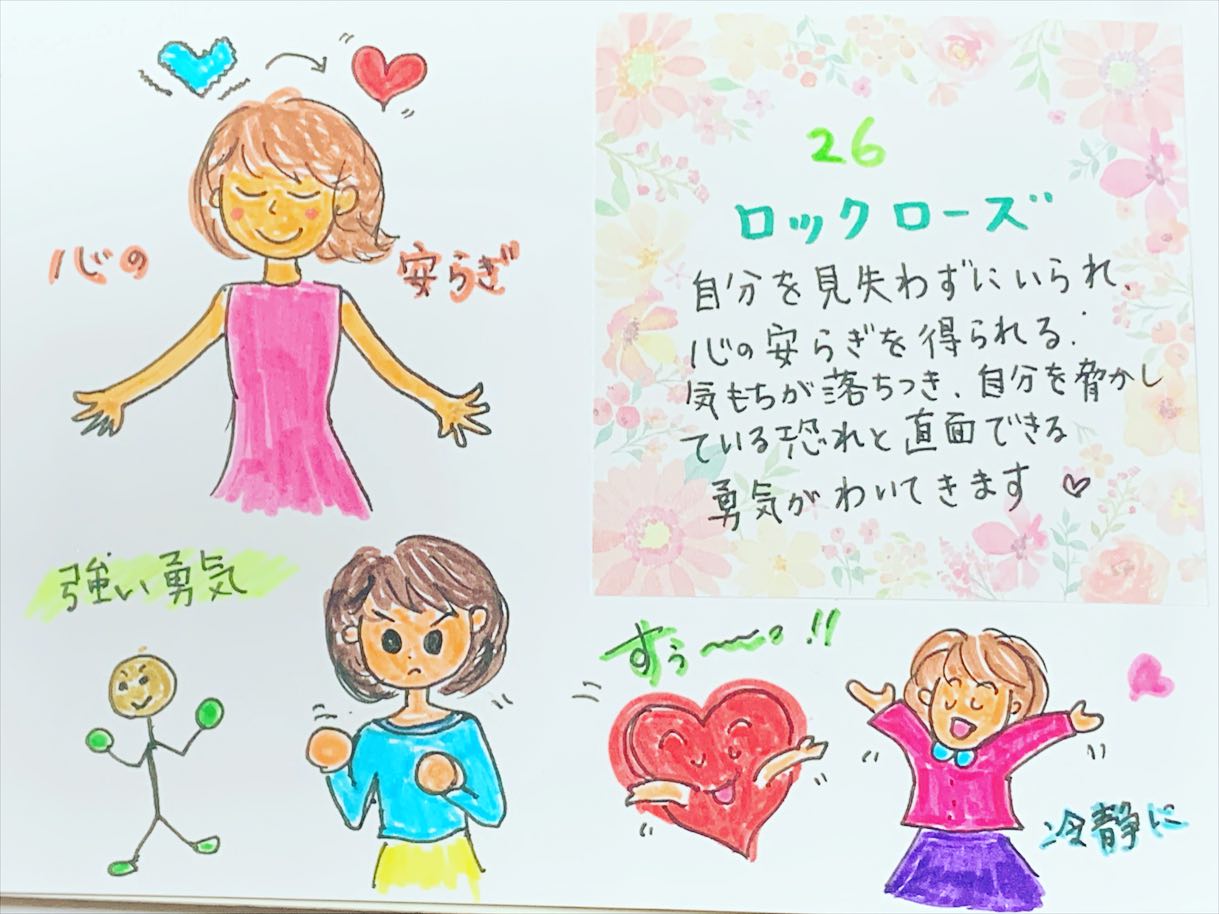 心の 安らぎ
26
ロックローズ
自分を見失わずにいられ、
心の安らぎを得られる.
気もちが落ちつき、自分を脅かし
ている恐れと直面できる
勇気がわいてきます♡
強い勇気
すぅ〜〜っ!!
冷静に